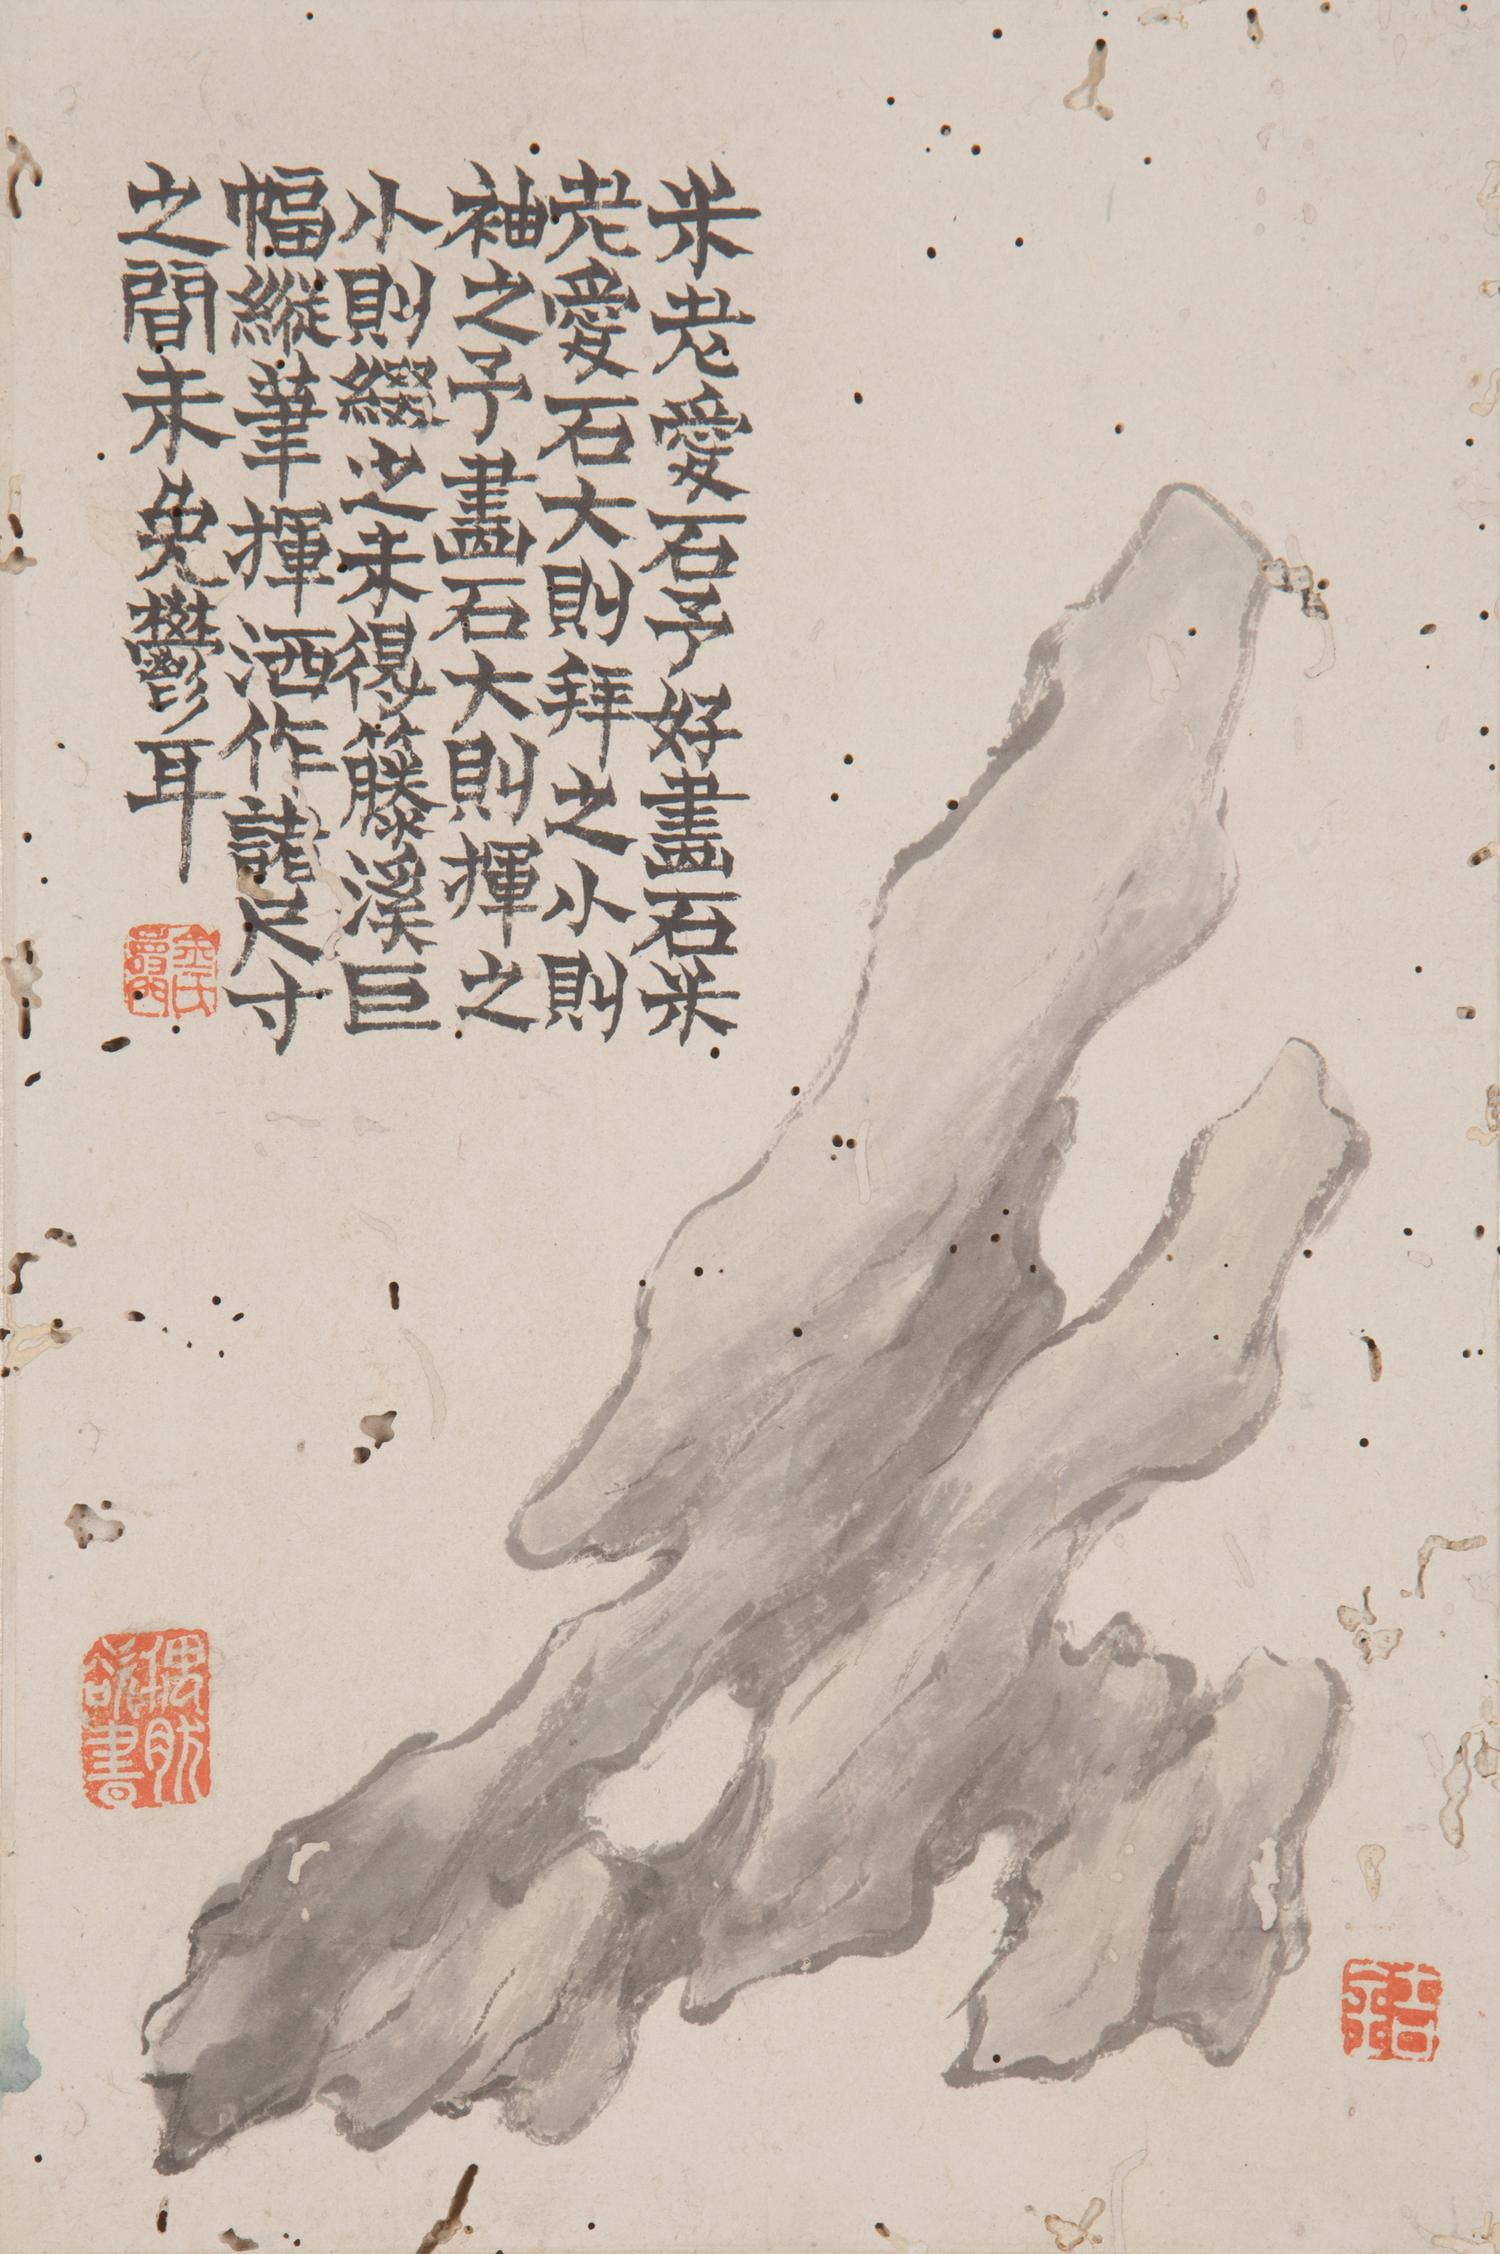 米老愛石予好畫石米
老愛石大則拜之小則
袖之予畫石大則揮之
小則綴之未得籐溪巨
幅縱筆揮洒作諸尺寸
之間未免鬱耳